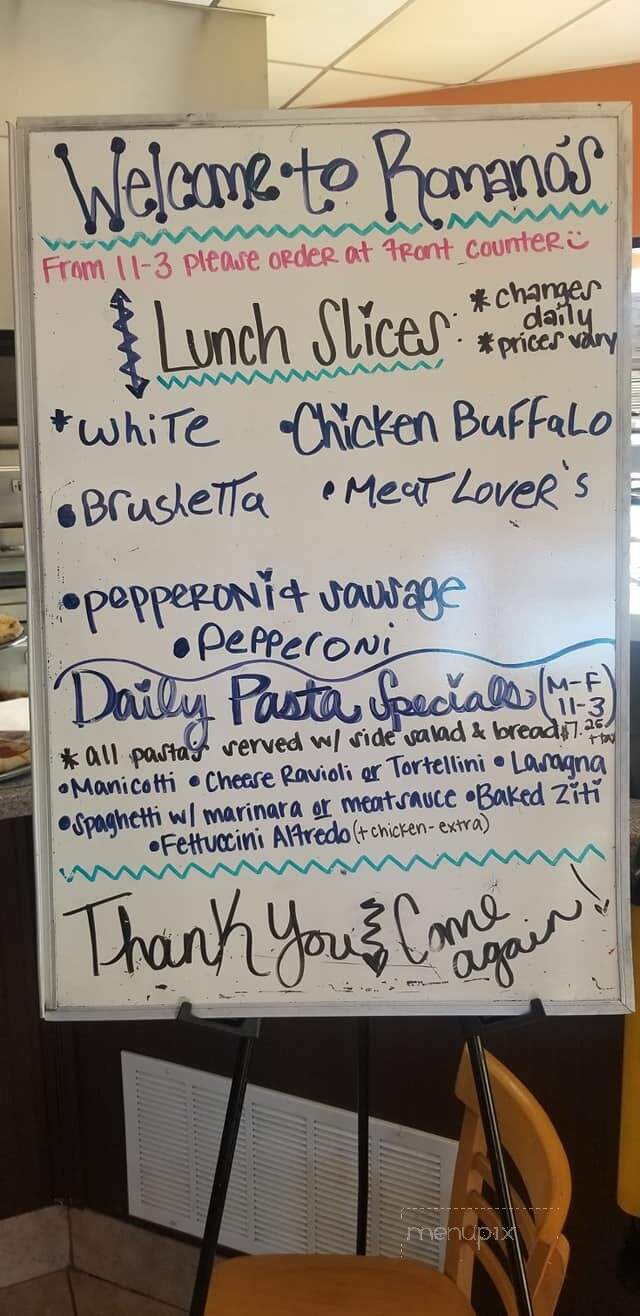 Welcome to Romano's
From 11-3 please order at front counter
Lunch Slices:
* changes daily
* prices vary
* White • Chicken Buffalo
• Brushetta • Meat Lover's
• pepperoni + sausage
• Pepperoni
Daily Pasta Specials (M-F 11-3)
* all pastas served w/ side salad & bread $7.25 + tax
• Manicotti • Cheese Ravioli or Tortellini • Lasagna
• Spaghetti w/ marinara or meatsauce • Baked Ziti
• Fettuccini Alfredo (+ chicken - extra)
Thank You & Come again!
menupix